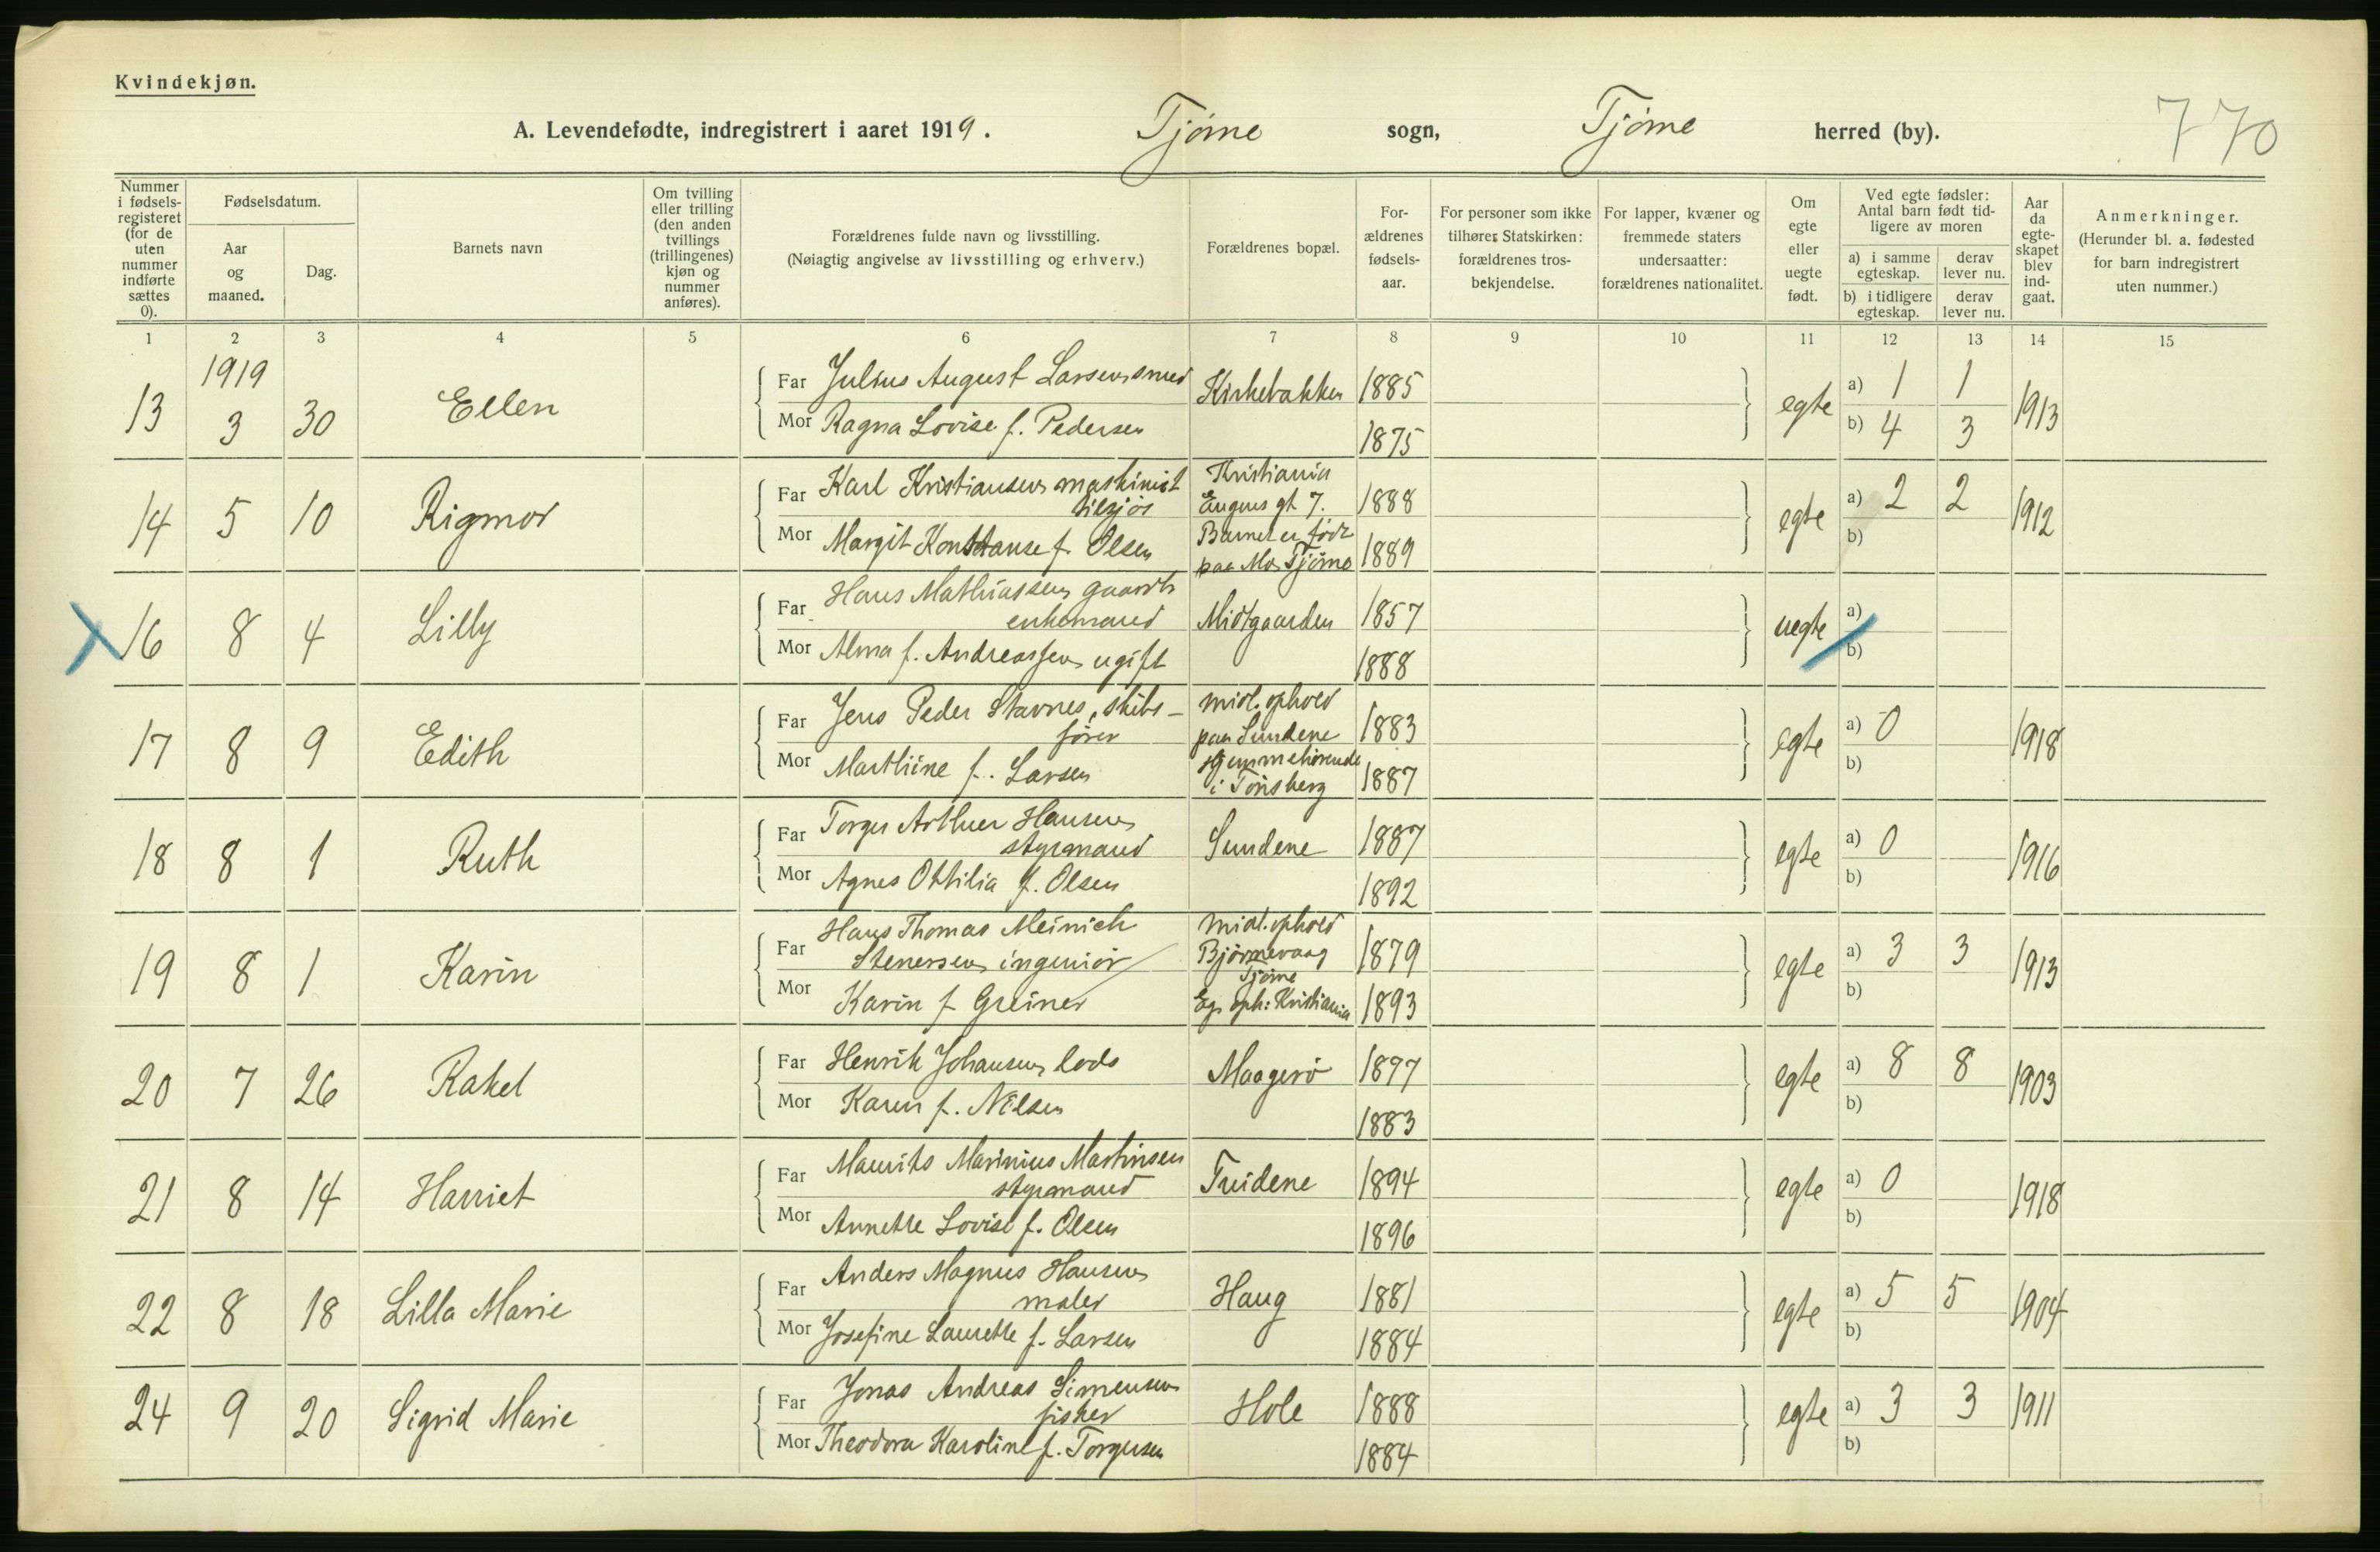 Kvindekjøn.
A. Levendefødte, indregistrert i aaret 1919. Tjøme sogn, Tjøme herred (by). 770
Nummer i fødsels-registeret (for de uten nummer indførte sættes 0).
Fødselsdatum.
Aar og maaned.
Dag.
Barnets navn
Om tvilling eller trilling (den anden tvillings (trillingenes) kjøn og nummer anføres).
Forældrenes fulde navn og livsstilling.
(Nøiagtig angivelse av livsstilling og erhverv.)
Forældrenes bopæl.
For-ældrenes fødsels-aar.
For personer som ikke tilhører Statskirken: forældrenes tros-bekjendelse.
For lapper, kvæner og fremmede staters undersaatter: forældrenes nationalitet.
Om egte eller uegte født.
Ved egte fødsler: Antal barn født tid-ligere av moren
a) i samme egteskap. derav lever nu.
b) i tidligere egteskap. derav lever nu.
Aar da egte-skapet blev ind-gaat.
Anmerkninger.
(Herunder bl. a. fødested for barn indregistrert uten nummer.)
1 2 3 4 5 6 7 8 9 10 11 12 13 14 15
1919
13 3 30 Ellen
Far Julius August Larsen smed Kirkebakken 1885 egte a) 1 1 1913
Mor Ragna Lovise f. Pedersen 1875 b) 4 3
14 5 10 Rigmor
Far Karl Kristiansen maskinist tilsjøs
Kristiania
Eugens gt 7. 1888 egte a) 2 2 1912
Mor Margit Konstanse f. Olsen
Barnet er født
paa Mo Tjöme 1889 b)
16 8 4 Lilly
Far Hans Mathiassen gaardb
enkemand Midtgaarden 1857 uegte a)
Mor Alma f. Andreassen ugift 1888 b)
17 8 9 Edith
Far Jens Peder Stavnes, skibs-
fører
midl. ophold
paa Sundene 1883 egte a) 0 1918
Mor Marthine f. Larsen
Hjemmehörende
i Tönsberg 1887 b)
18 8 1 Ruth
Far Torger Arthur Hansen
styrmand Sundene 1887 egte a) 0 1916
Mor Agnes Othilia f. Olsen 1892 b)
19 8 1 Karin
Far Hans Thomas Meinich
Stenersen ingeniör
midl. ophold
Björnevaag
Tjöme 1879 egte a) 3 3 1913
Mor Karin f Greiner
Eg. oph: Kristiania 1893 b)
20 7 26 Rakel
Far Henrik Johansen lods Maagerö 1897 egte a) 8 8 1903
Mor Karen f. Nilsen 1883 b)
21 8 14 Harriet
Far Maurits Marinius Martinsen
styrmand 1894 egte a) 0 1918
Mor Annette Lovise f. Olsen 1896 b)
22 8 18 Lilla Marie
Far Anders Magnus Hansen
maler Haug 1881 egte a) 5 5 1904
Mor Josefine Laurette f. Larsen 1884 b)
24 9 20 Sigrid Marie
Far Jonas Andreas Simensen
fisker Hole 1888 egte a) 3 3 1911
Mor Theodora Karoline f. Torgersen 1884 b)